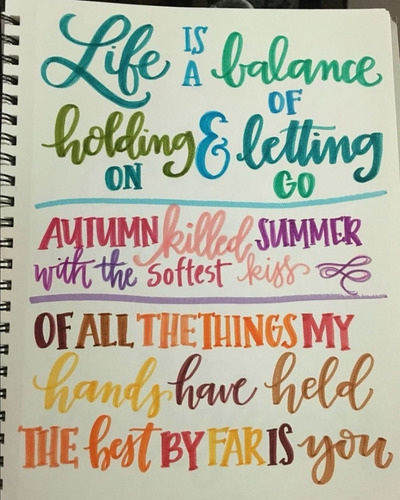 Life IS A balance
OF
holding & letting
ON GO
AUTUMN killed SUMMER
with the softest kiss
OF ALL THE THINGS MY
hands have held
THE best BY FAR IS you